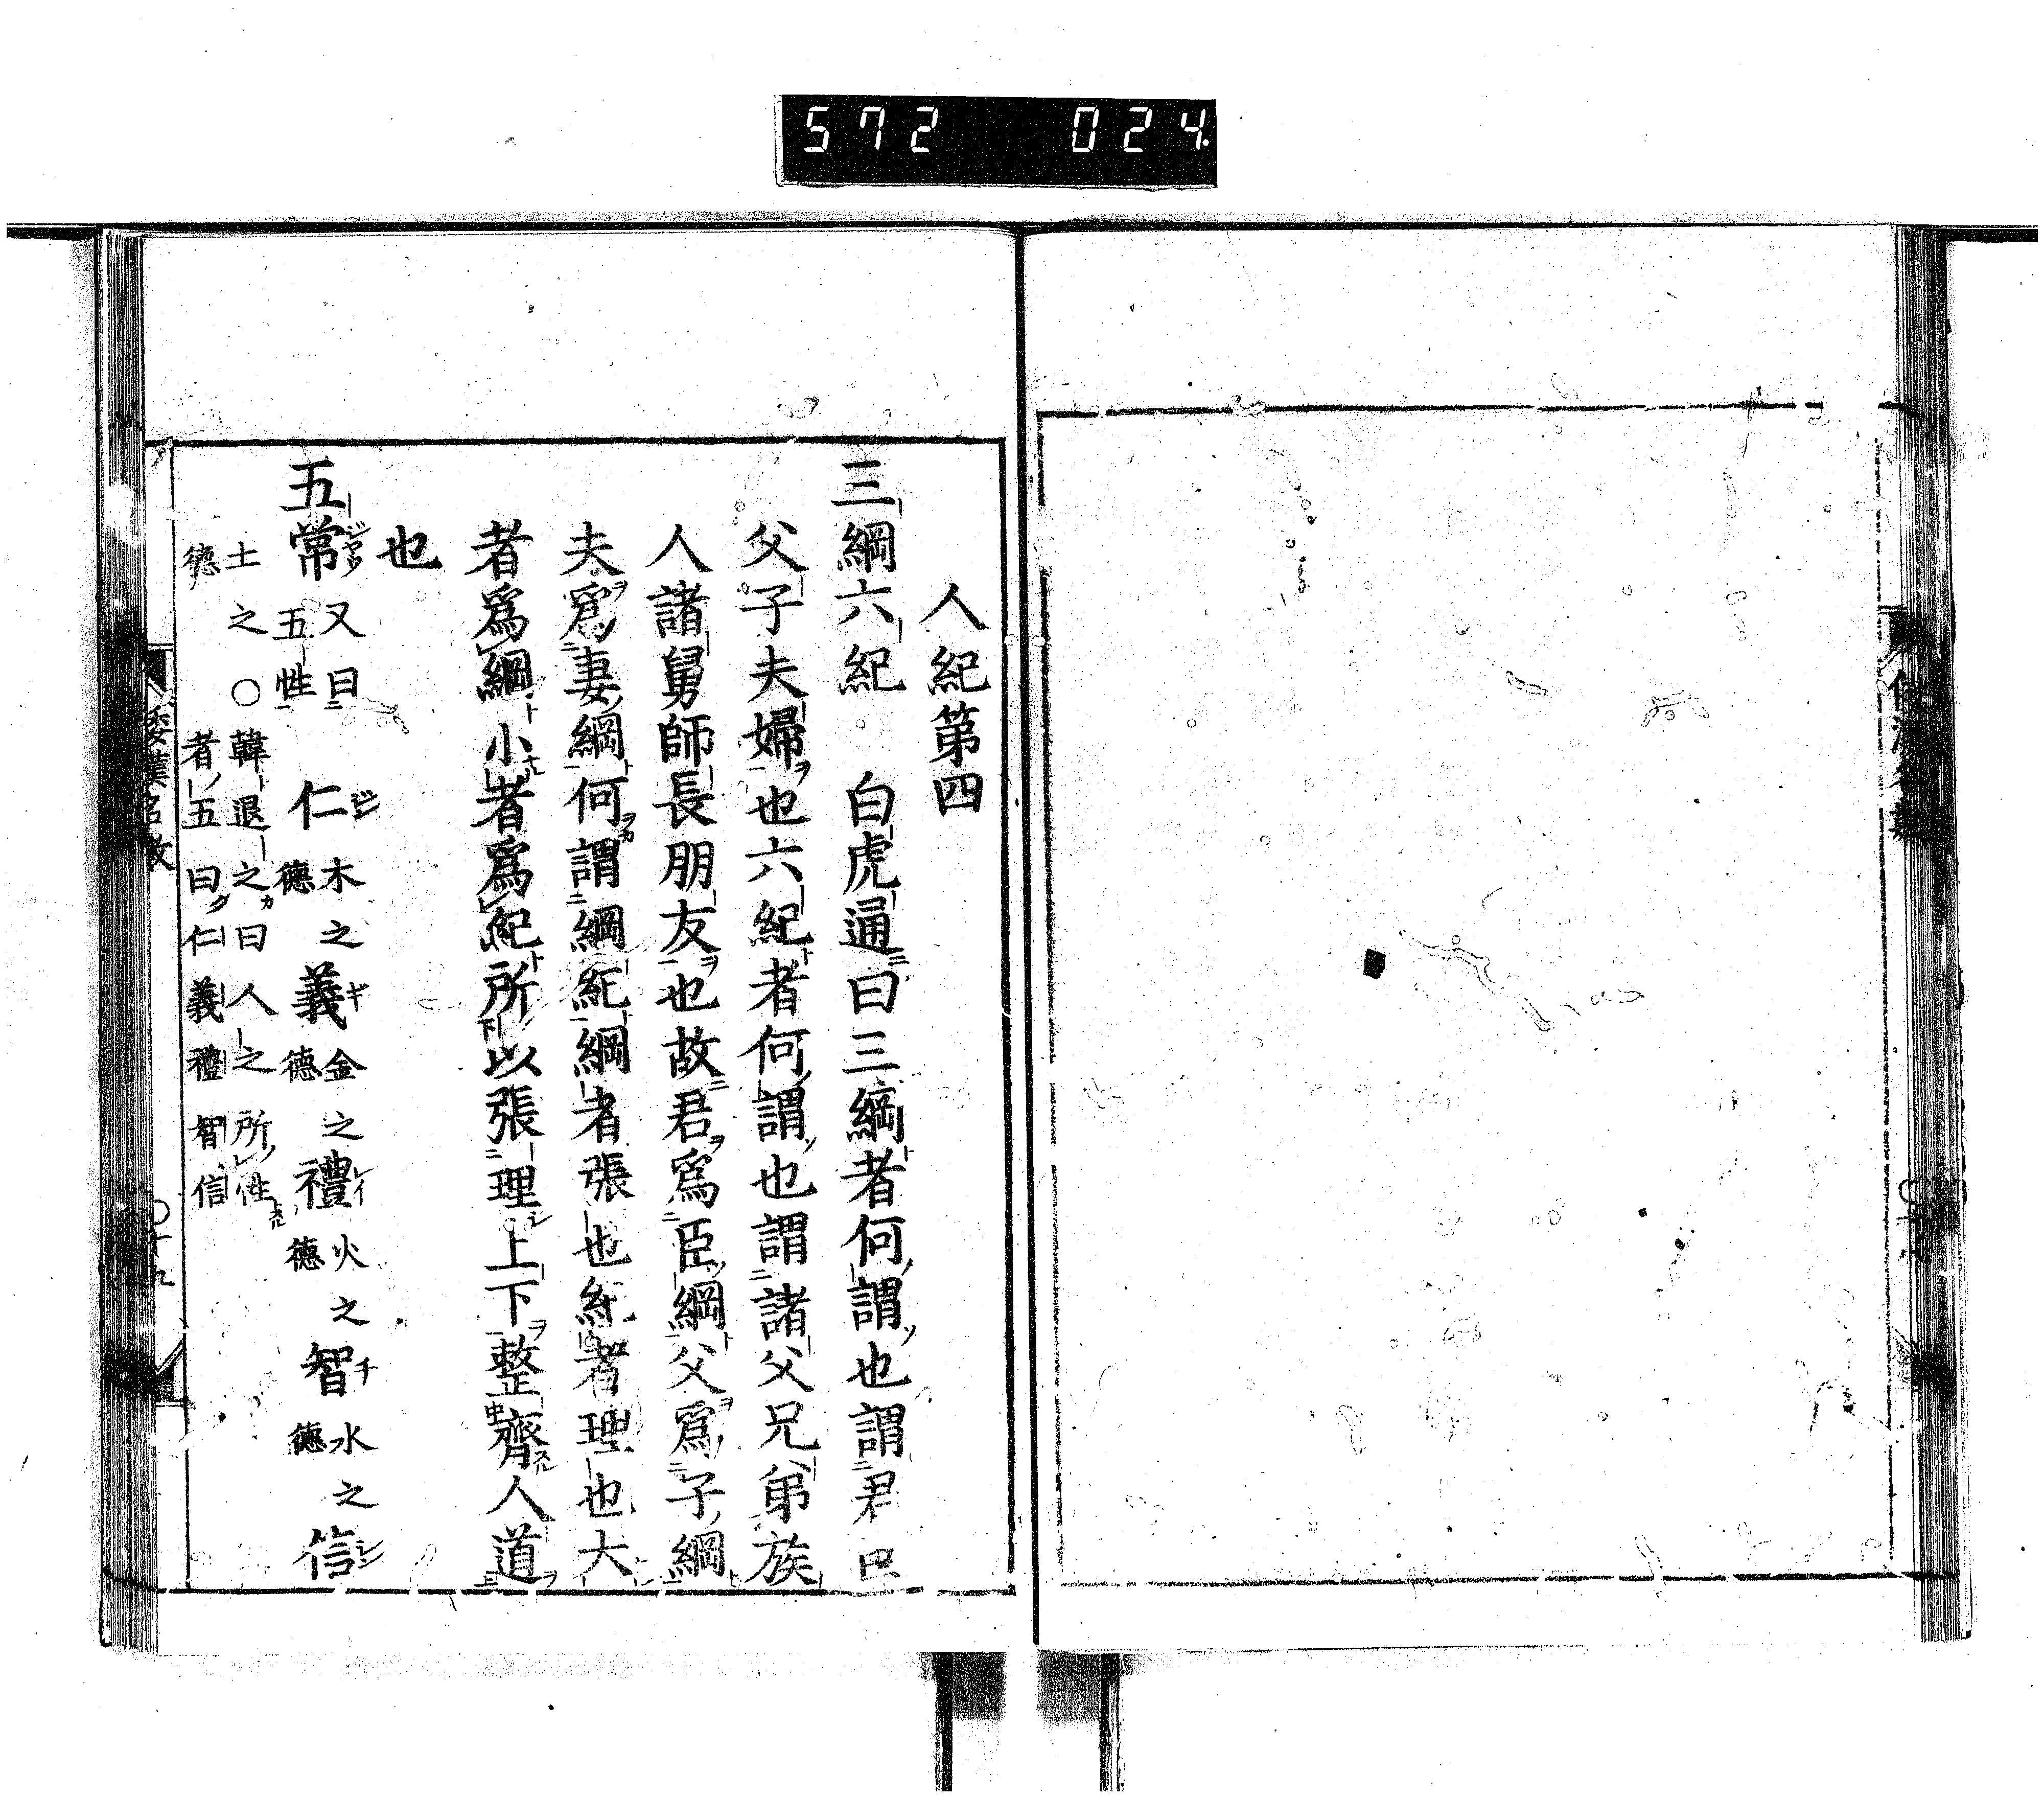 572 024
人紀第四
三綱六紀 白虎通曰三綱者何謂也謂君臣
父子夫婦也六紀者何謂也謂諸父兄弟族
人諸舅師長朋友也故君爲臣綱父爲子綱
夫爲妻綱何謂綱紀綱者張也紀者理也大
者爲綱小者爲紀所以張理上下整齊人道
也
五常 又曰五性 仁 木之德 義 金之德 禮 火之德 智 水之德 信
土之德 ○韓退之曰人之所性者五曰仁義禮智信
倭漢名數 ○十九